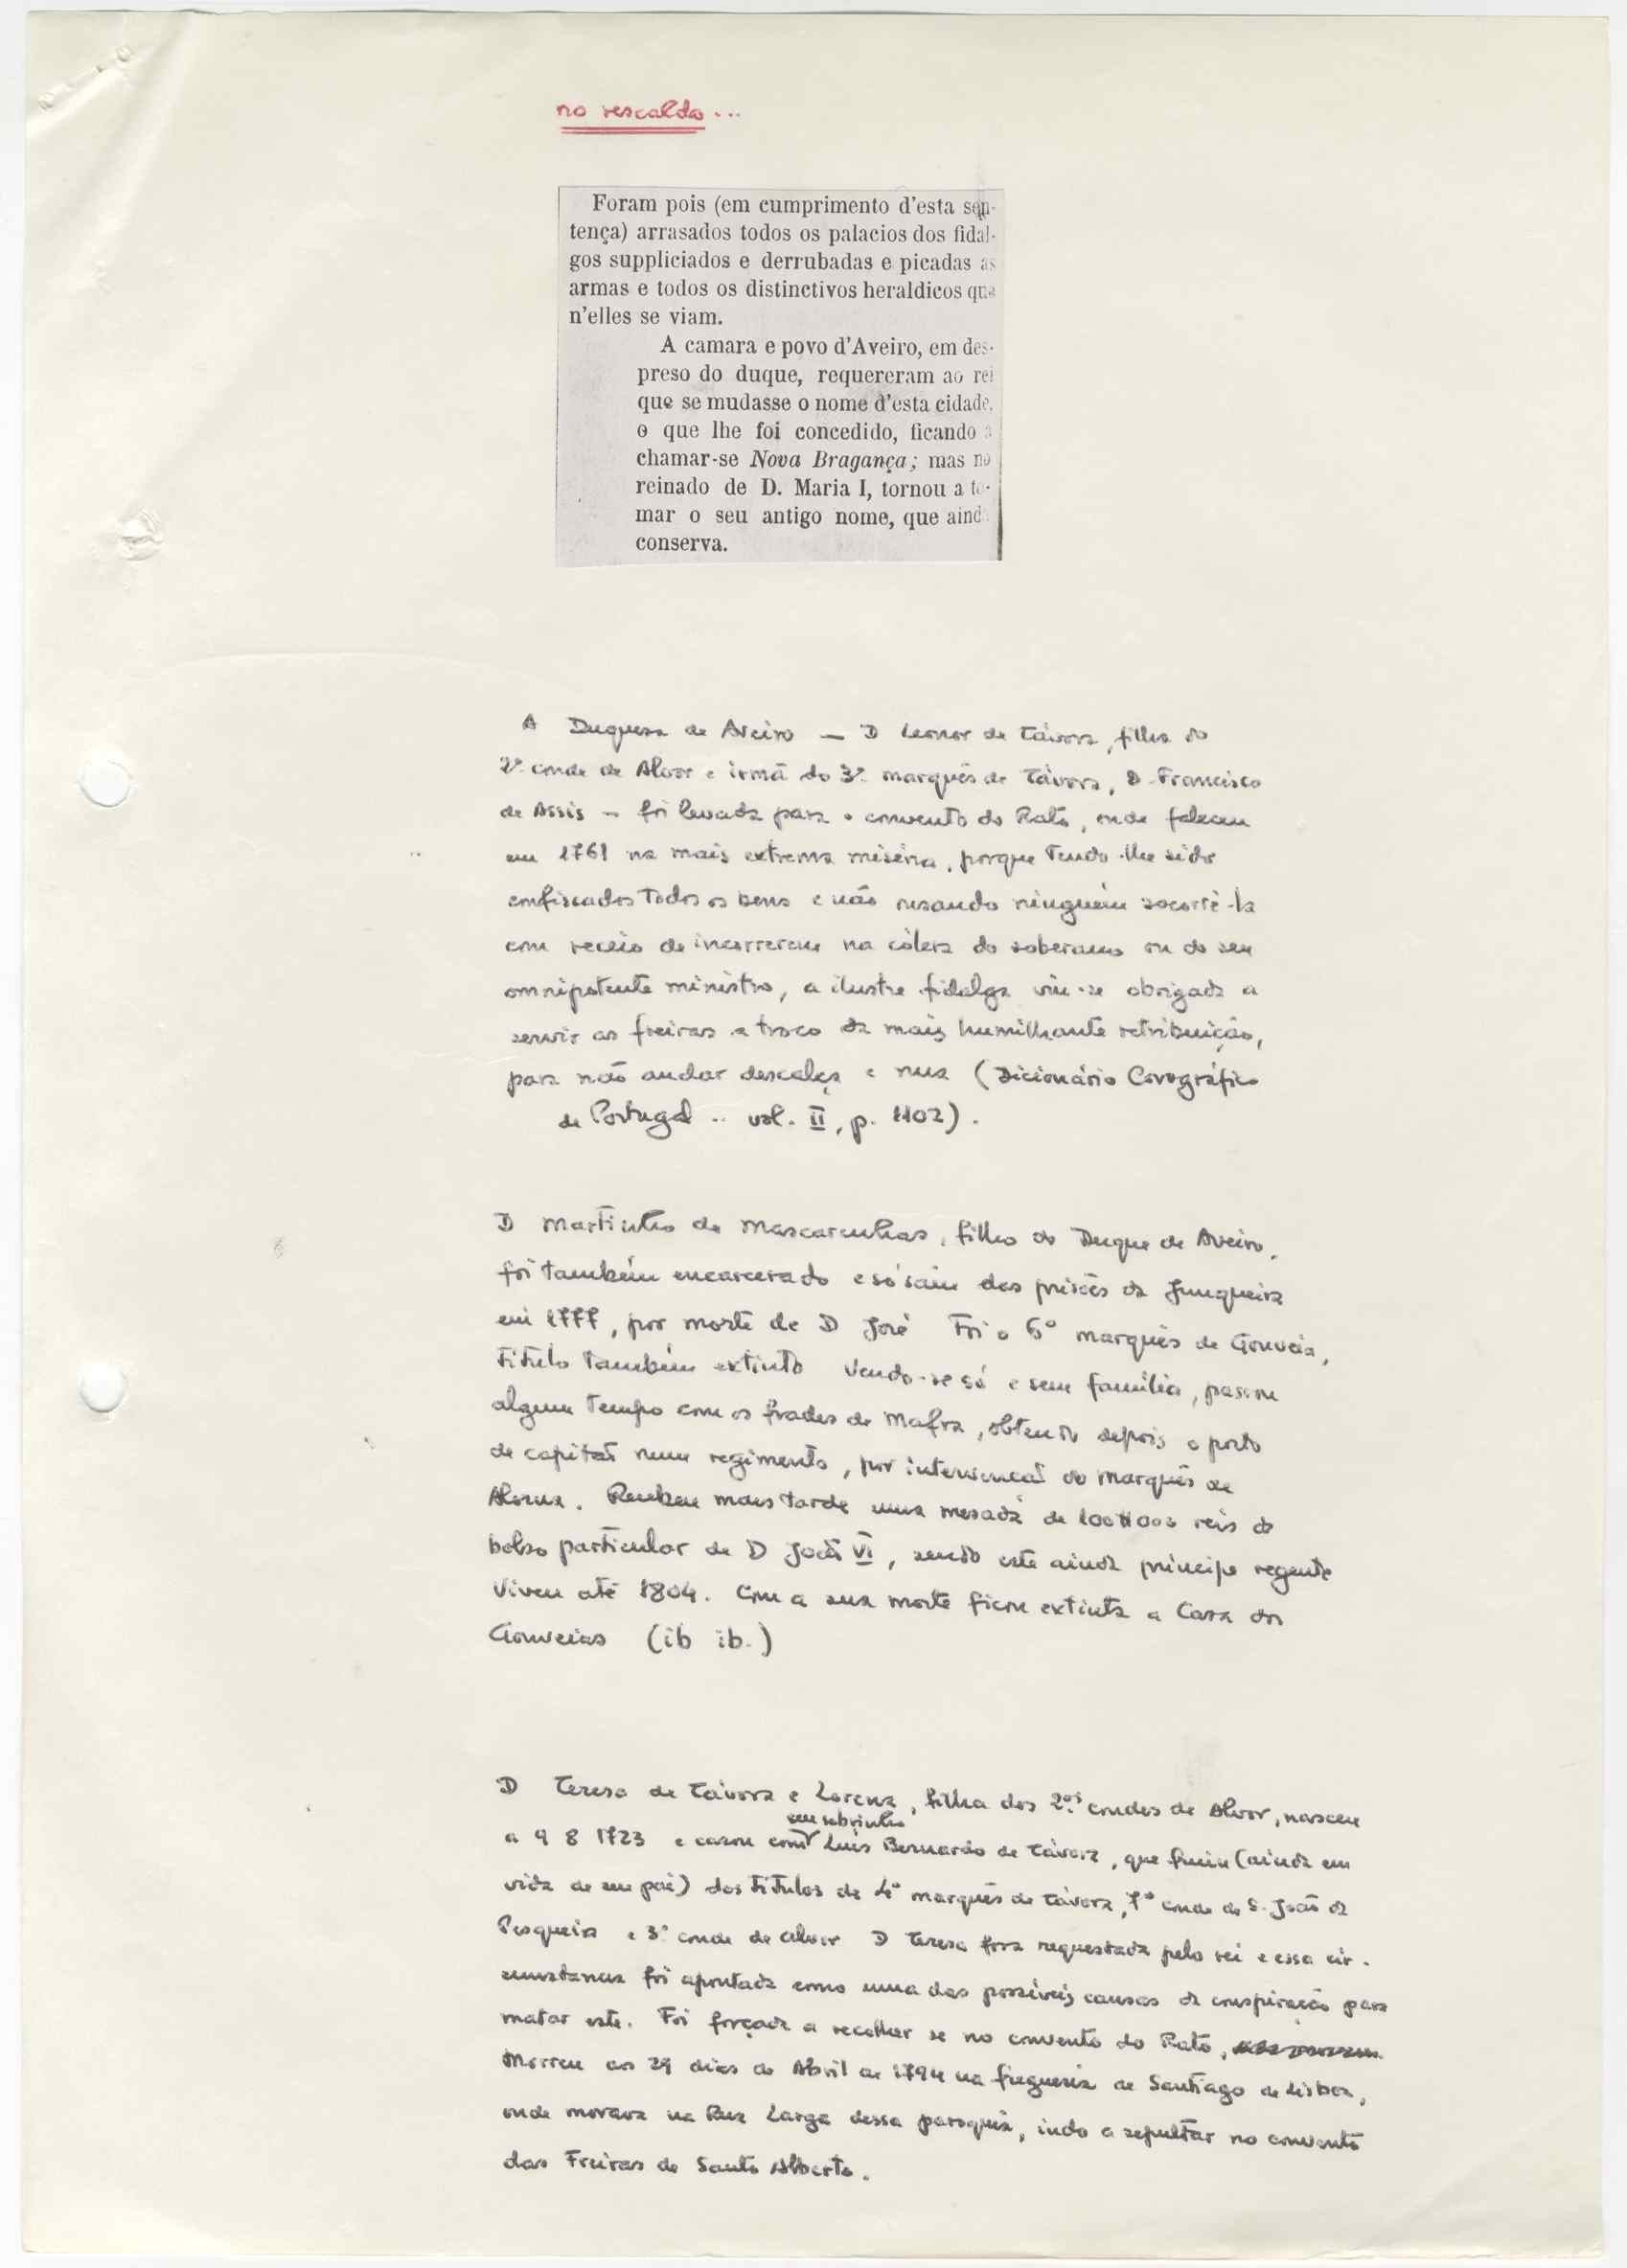 no rescaldo...
Foram pois (em cumprimento d'esta sen-
tença) arrasados todos os palacios dos fidal-
gos suppliciados e derrubadas e picadas as
armas e todos os distinctivos heraldicos que
n'elles se viam.
A camara e povo d'Aveiro, em des-
preso do duque, requereram ao rei
que se mudasse o nome d'esta cidade,
o que lhe foi concedido, ficando a
chamar-se Nova Bragança; mas no
reinado de D. Maria I, tornou a to-
mar o seu antigo nome, que ainda
conserva.
A Duquesa de Aveiro — D Leonor de Távora, filha do
2º conde de Alvor e irmã do 3º marquês de Távora, D. Francisco
de Assis — foi levada para o convento do Rato, onde faleceu
em 1761 na mais extrema miséria, porque tendo-lhe sido
confiscados todos os bens e não ousando ninguém socorrê-la
com receio de incorrerem na cólera do soberano ou do seu
omnipotente ministro, a ilustre fidalga viu-se obrigada a
servir as freiras a troco da mais humilhante retribuição,
para não andar descalça e nua (Dicionário Corográfico
de Portugal .. vol. II, p. 1102).
D Martinho de Mascarenhas, filho do Duque de Aveiro,
foi também encarcerado e só saiu das prisões da Junqueira
em 1777, por morte de D José Foi o 6º marquês de Gouveia,
título também extinto Vendo-se só e sem família, passou
algum tempo com os frades de Mafra, obtendo depois o posto
de capitão num regimento, por intervenção do marquês de
Alorna. Recebeu mais tarde uma mesada de 100#000 reis do
bolso particular de D João VI, sendo este ainda príncipe regente
Viveu até 1804. Com a sua morte ficou extinta a Casa dos
Gouveias (ib ib.)
D Teresa de Távora e Lorena, filha dos 2ºs condes de Alvor, nasceu
seu sobrinho
a 9 8 1723 e casou com Luís Bernardo de Távora, que fruiu (ainda em
vida de seu pai) dos títulos de 4º marquês de Távora, 7º conde de S. João da
Pesqueira e 3º conde de Alvor D Teresa fora requestada pelo rei e essa cir-
cunstancia foi apontada como uma das possíveis causas da conspiração para
matar este. Foi forçada a recolher se no convento do Rato,
Morreu aos 29 dias de Abril de 1794 na freguesia de Santiago de Lisboa,
onde morava na Rua Larga dessa paroquia, indo a sepultar no convento
das Freiras de Santo Alberto.